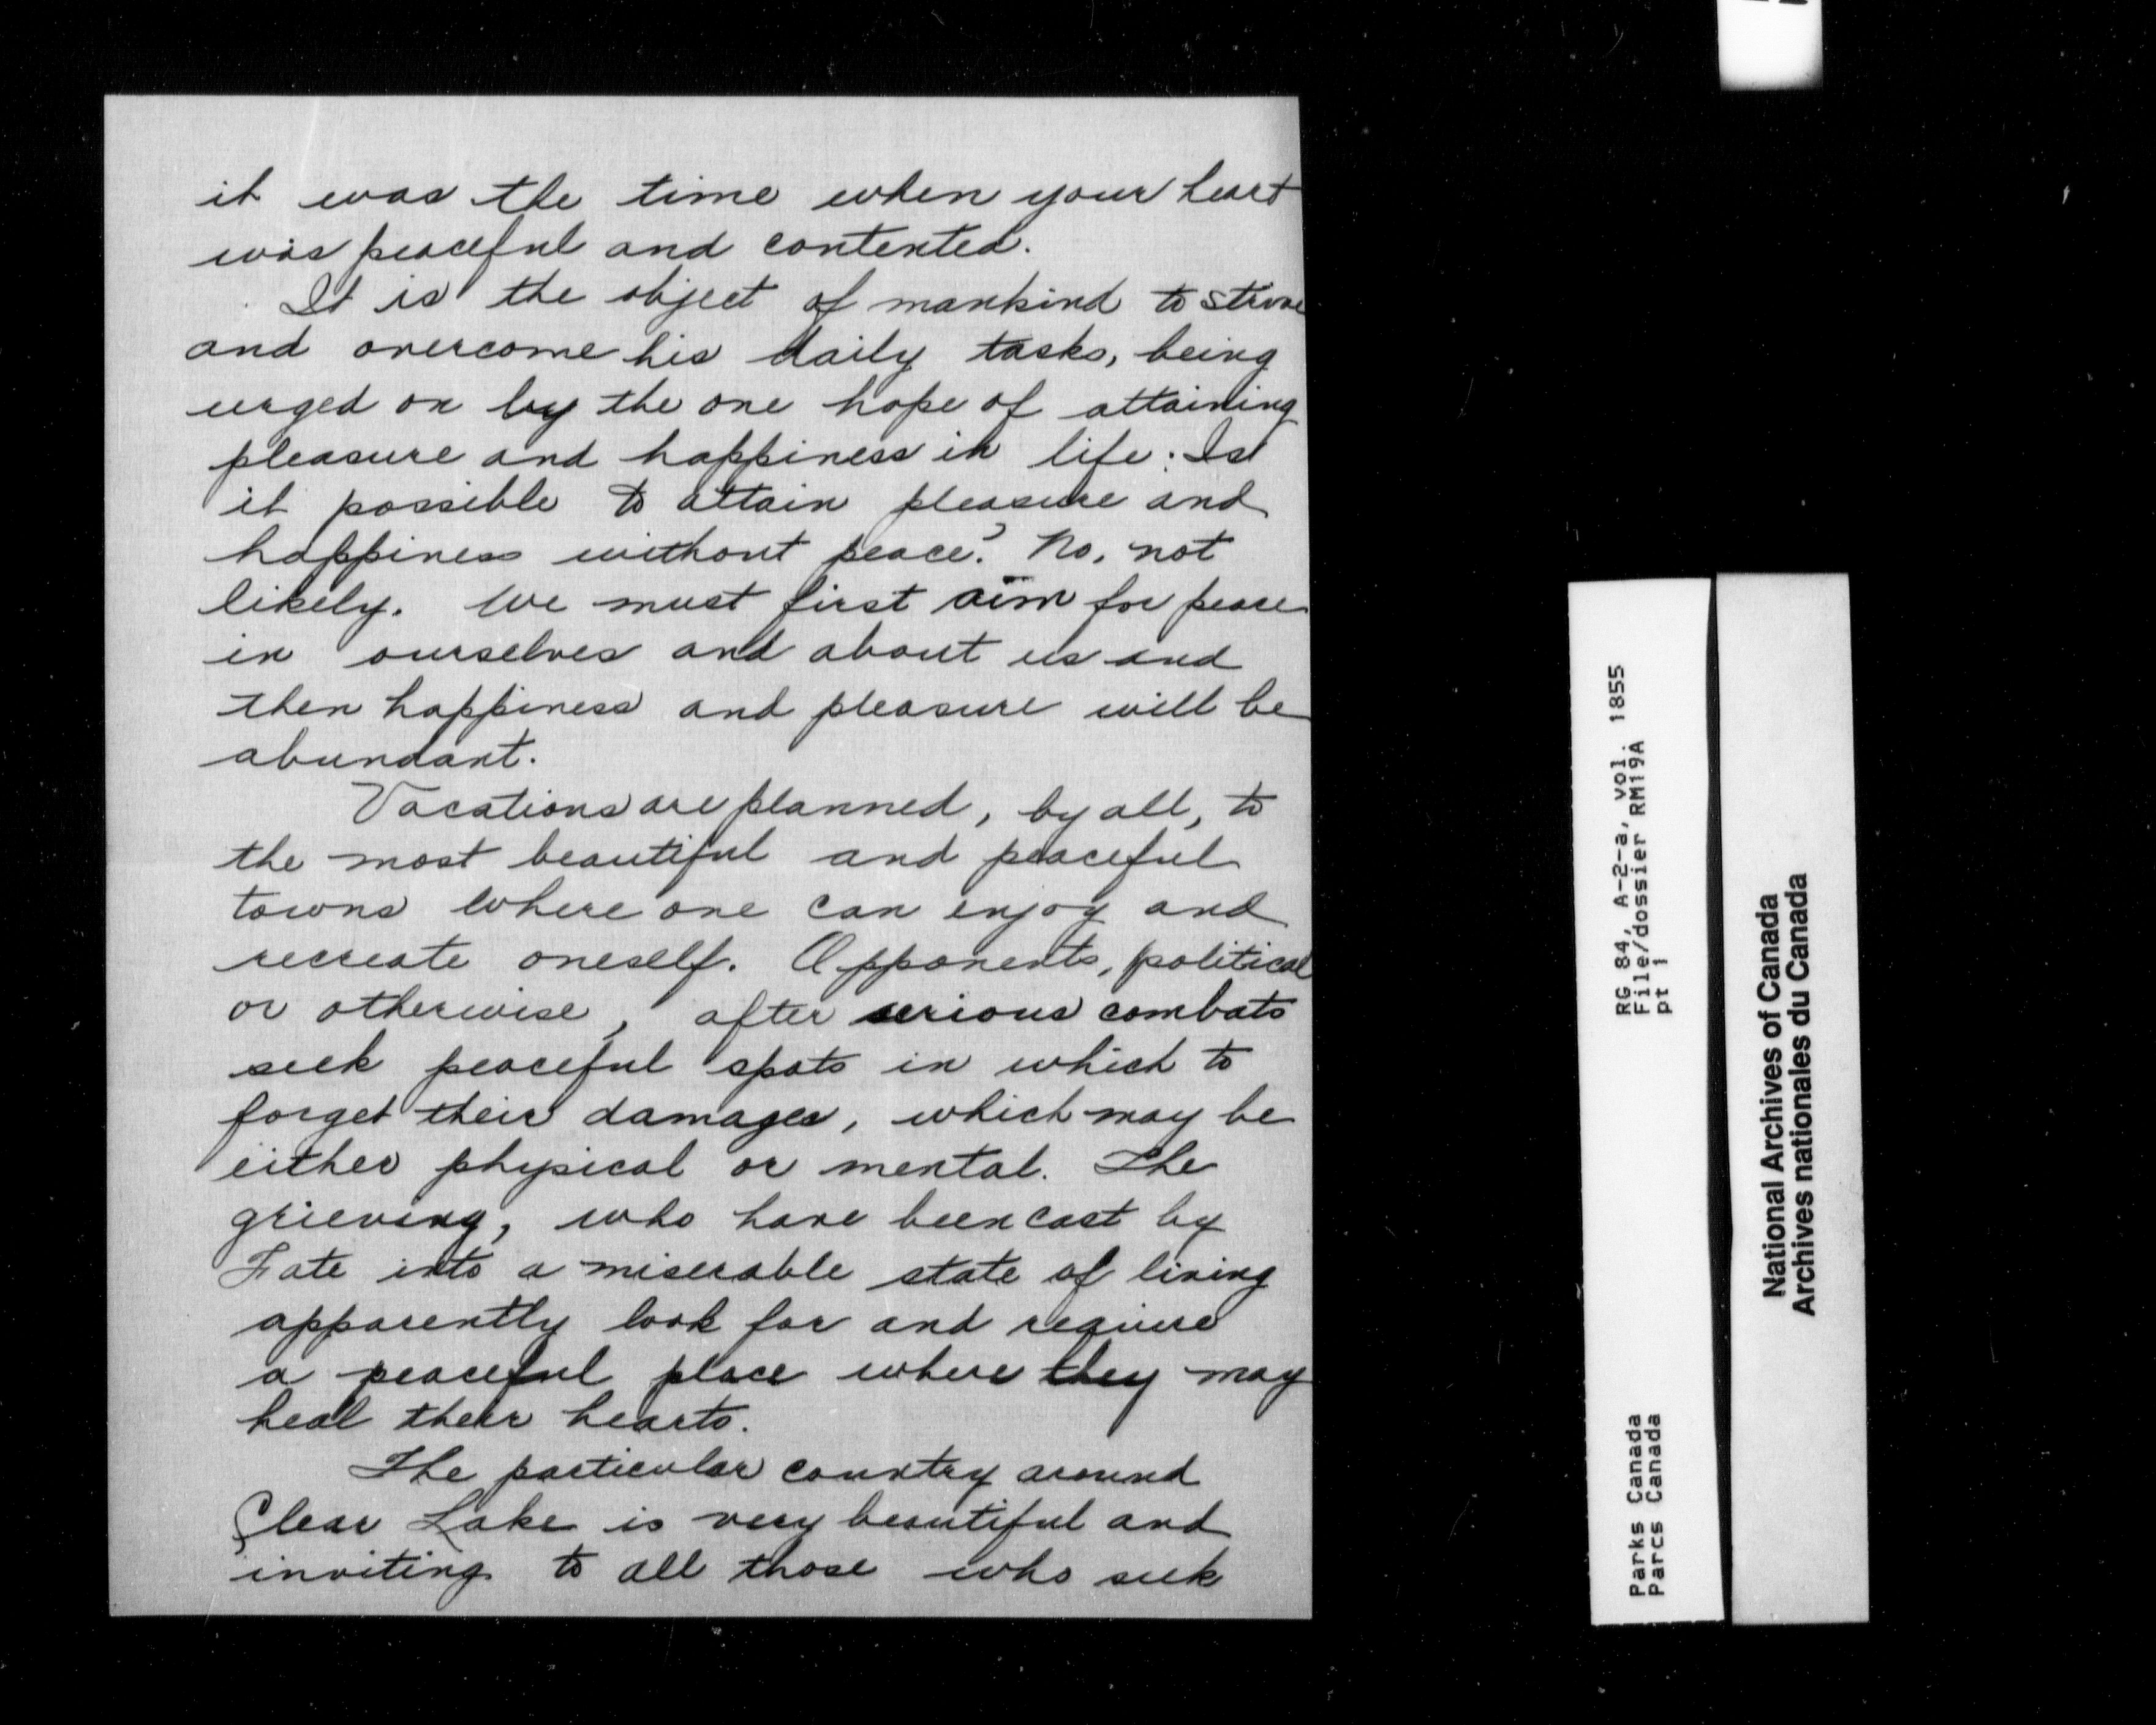 it was the time when your heart
was peaceful and contented.
It is the object of mankind to strive
and overcome his daily tasks, being
urged on by the one hope of attaining
pleasure and happiness in life. Is
it possible to attain pleasure and
happiness without peace? No, not
likely. We must first aim for peace
in ourselves and about us and
then happiness and pleasure will be
abundant.
Vacations are planned, by all, to
the most beautiful and peaceful
towns where one can enjoy and
recreate oneself. Opponents, political
or otherwise, after serious combats
seek peaceful spots in which to
forget their damages, which may be
either physical or mental. The
grieving, who have been cast by
Fate into a miserable state of living
apparently look for and require
a peaceful place where they may
heal their hearts.
The particular country around
Clear Lake is very beautiful and
inviting to all those who seek
RG 84, A-2-a, vol. 1855
File/dossier RM19A
pt 1
Parks Canada
Parcs Canada
National Archives of Canada
Archives nationales du Canada